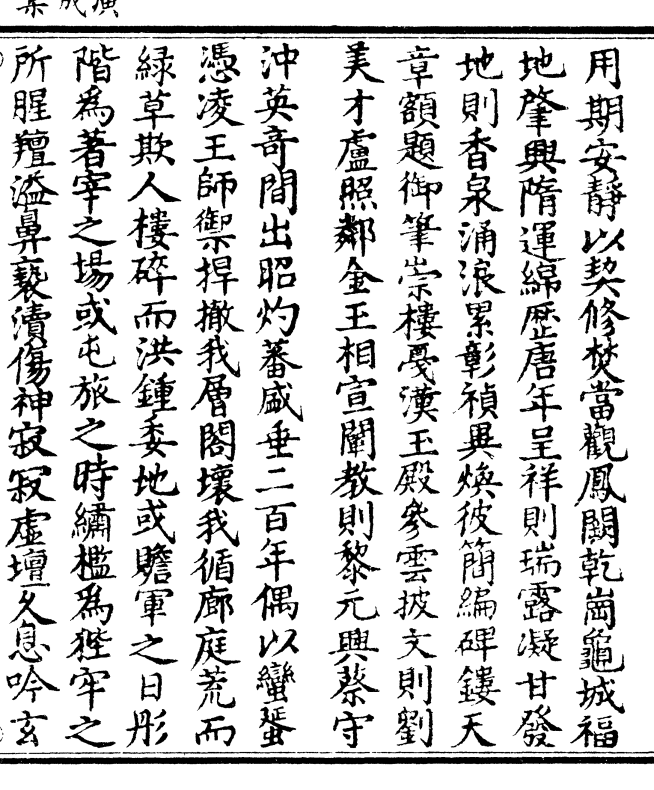 用期安靜以契修焚當觀鳳闕乾崗龜城福
地肇興隋運綿歷唐年呈祥則瑞露凝甘發
地則香泉涌浪累彰禎異煥彼簡編碑鏤天
章額題御筆崇樓戞漢玉殿參雲披文則劉
美才盧照鄰金玉相宣闡教則黎元興蔡守
沖英竒間出昭灼蕃盛垂二百年偶以蠻蜑
憑凌王師禦捍撤我層閣壞我循廊庭荒而
緑草欺人樓碎而洪鍾委地或贍軍之日彤
階為著宰之場或屯旅之時繡檻為狴牢之
所腥羶溢鼻褻瀆傷神寂寂虛壇久息吟玄